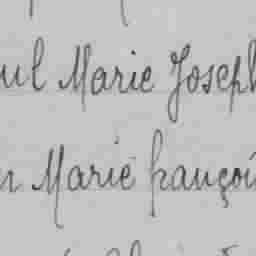 ul Marie Joseph
n Marie françoi